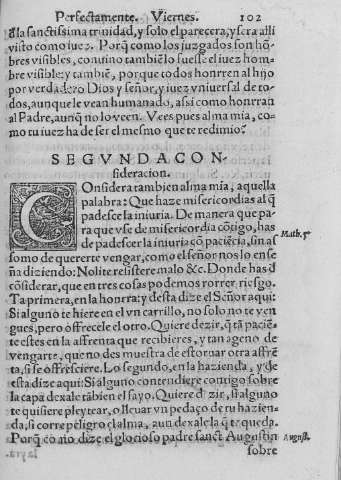 Perfectamente. Viernes. 102
d̃la sanctissima trinidad, y solo el parecera, y sera alli
visto como iuez. Porq̃ como los juzgados son hõ-
bres visibles, conuino tambiẽ lo fuesse el iuez hom-
bre visible: y tambiẽ, porque todos honrren al hijo
por verdadero Dios y señor, y iuez vniuersal de to-
dos, aunque le vean humanado, assi como honrran
al Padre, aunq̃ no lo veen. Vees pues alma mia, co-
mo tu iuez ha de ser el mesmo que te redimio?
SEGVNDA CON-
sideracion.
COnsidera tambien alma mia, aquella
palabra: Que haze misericordias al q̃
padesce la iniuria. De manera que pa-
ra que vse de misericordia cõtigo, has
de padescer la iniuria cõ paciẽcia, sin as
somo de quererte vengar, como el señor nos lo ense
ña diziendo: Nolite resistere malo &c. Donde has d̃
cõsiderar, que en tres cosas podemos correr riesgo.
La primera, en la honrra: y desta dize el Señor aqui:
Si alguno te hiere en el vn carrillo, no solo no te ven
gues, pero offrecele el otro. Quiere dezir, q̃ tã paciẽ-
te estes en la affrenta que recibieres, y tan ageno de
vengarte, que no des muestra de estoruar otra affrẽ
ta, si se offresciere. Lo segundo, en la hazienda, y de
esta dize aqui: Si alguno contendiere contigo sobre
la capa dexale tãbien el sayo. Quiere dezir, si alguno
te quisiere pleytear, o lleuar vn pedaço de tu hazien
da, si corre peligro el alma, aun dexale la q̃ te queda.
Porq̃ como dize el glorioso padre sanct Augustin
sobre
Math. 5
August.